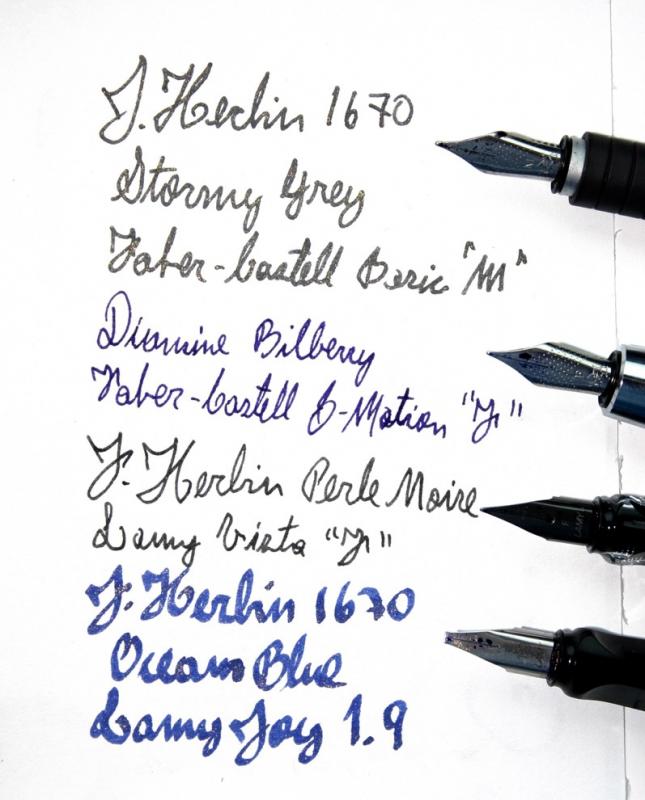 J. Herbin 1670
Stormy Grey
Faber-Castell Basic "M"
Diamine Bilberry
Faber-Castell E-Motion "F"
J. Herbin Perle Noire
Lamy Vista "F"
J. Herbin 1670
Ocean Blue
Lamy Joy 1.9
LAMY